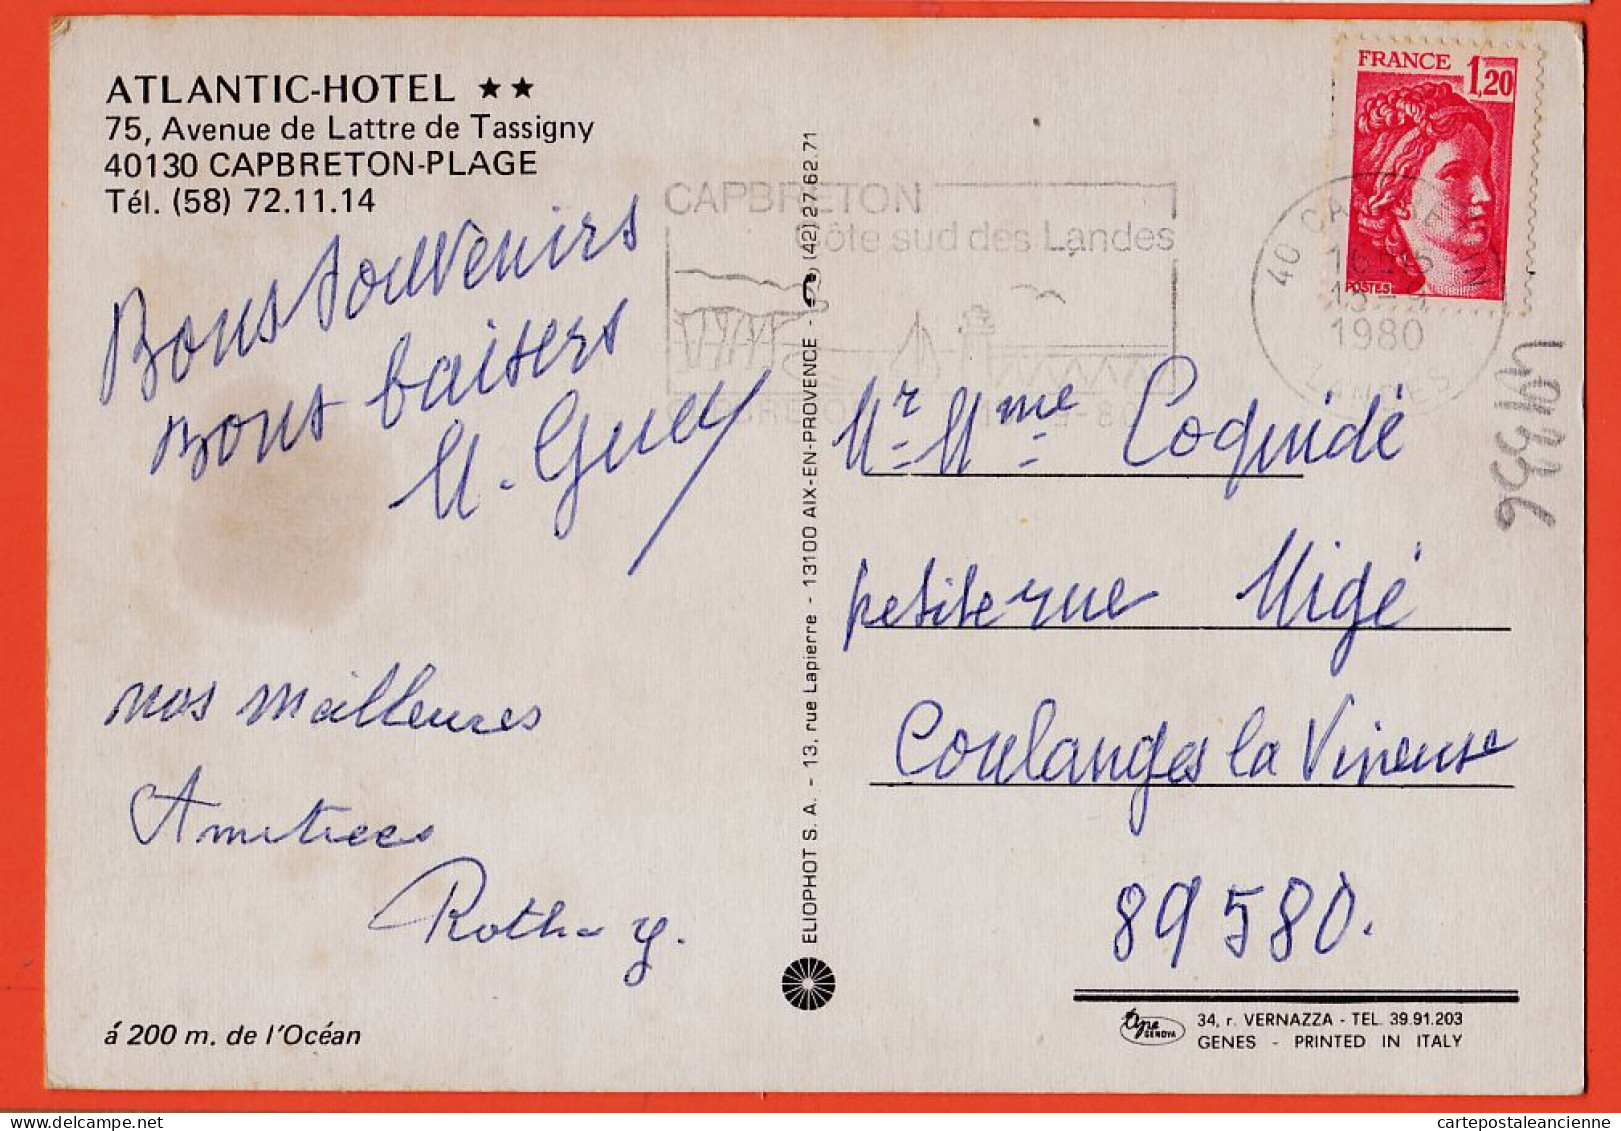 ATLANTIC-HOTEL ★★
75, Avenue de Lattre de Tassigny
40130 CAPBRETON-PLAGE
Tél. (58) 72.11.14
Bons souvenirs
Bons baisers
M. Guey
nos meilleures
Amitiees
Roth
á 200 m. de l'Océan
ELIOPHOT S. A. - 13, rue Lapierre - 13100 AIX-EN-PROVENCE - (42) 27.62.71
CAPBRETON
Côte sud des Landes
CAPBRETON
FRANCE 1,20
POSTES
40 CAPBRETON
1980
LANDES
Mr. Mme Coquidé
petite rue Migé
Coulanges la Vineuse
89580.
34, r. VERNAZZA - TEL. 39.91.203
GENES - PRINTED IN ITALY
cartepostaleancienne